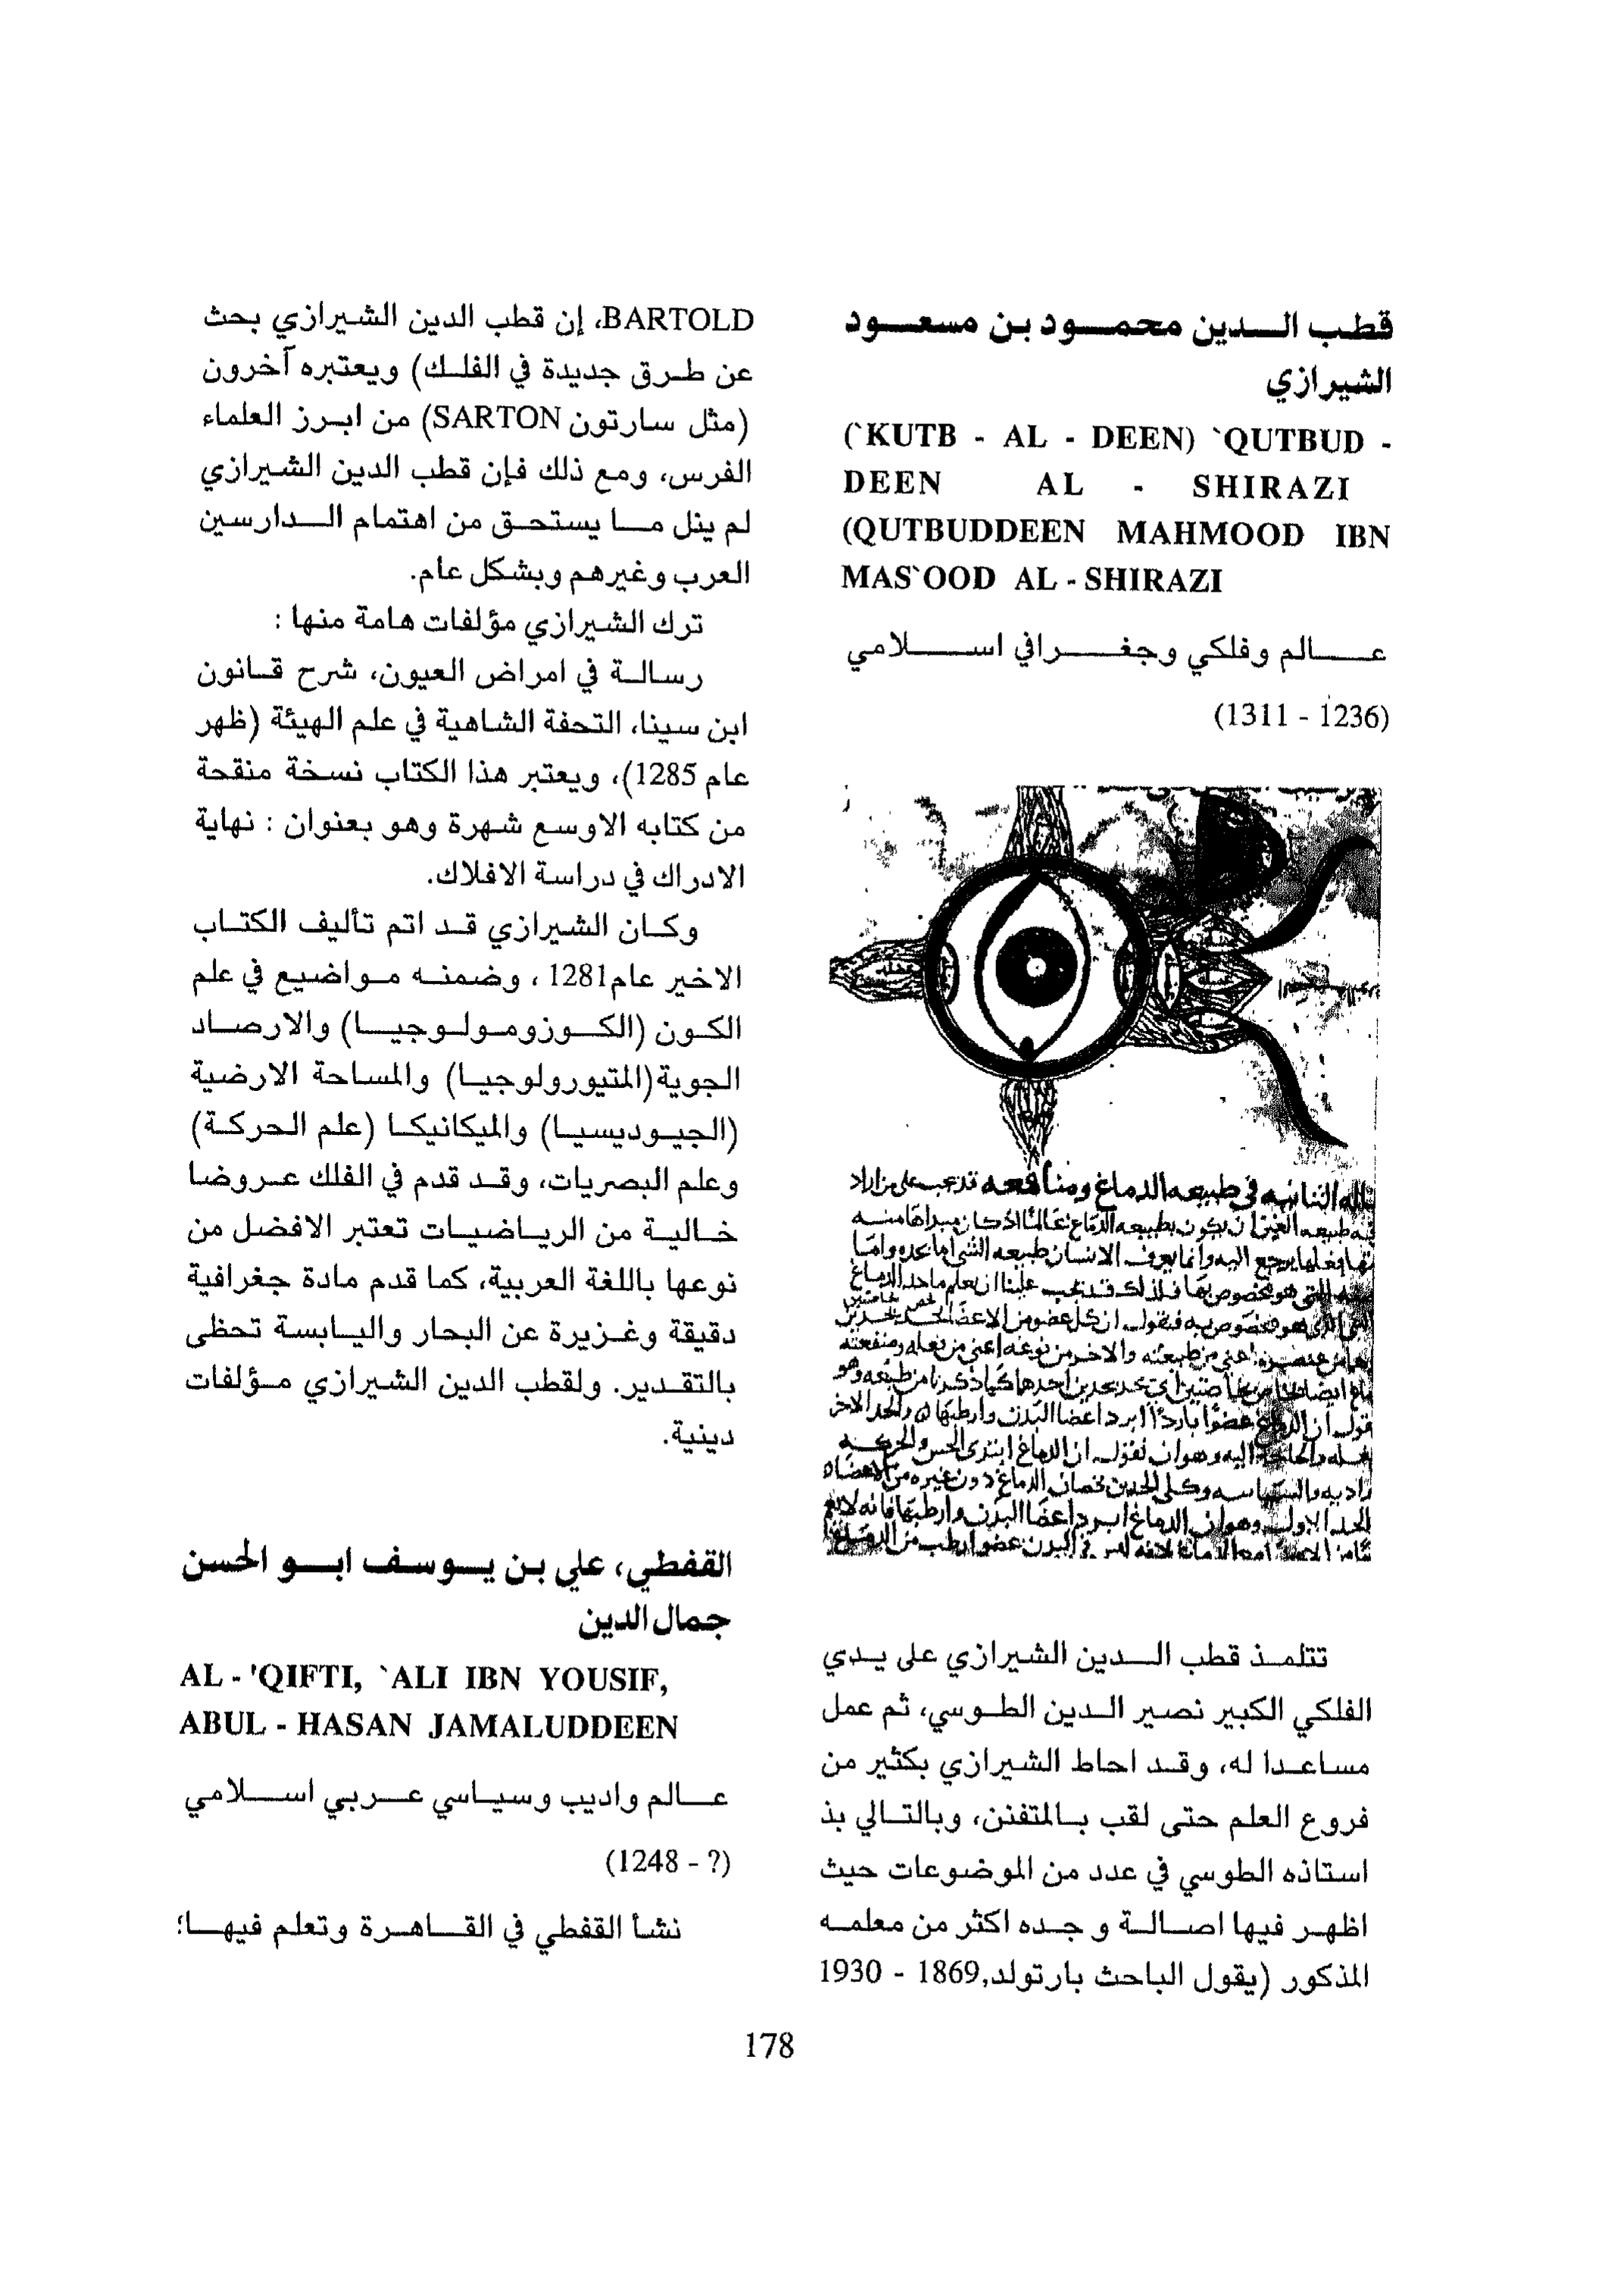 قطب الدين محمود بن مسعود
الشيرازي
(`KUTB - AL - DEEN) `QUTBUD -
DEEN AL - SHIRAZI
(QUTBUDDEEN MAHMOOD IBN
MAS`OOD AL - SHIRAZI
عالم وفلكي وجغرافي اسلامي
(1236 - 1311)
الثانيه في طبيعه الدماغ ومنافعه قد يجب على من اراد
تتلمذ قطب الدين الشيرازي على يدي
الفلكي الكبير نصير الدين الطوسي، ثم عمل
مساعدا له، وقد احاط الشيرازي بكثير من
فروع العلم حتى لقب بالمتفنن، وبالتالي بذ
استاذه الطوسي في عدد من الموضوعات حيث
اظهر فيها اصالة و جده اكثر من معلمه
المذكور (يقول الباحث بارتولد,1869 - 1930
BARTOLD، إن قطب الدين الشيرازي بحث
عن طرق جديدة في الفلك) ويعتبره آخرون
(مثل سارتون SARTON) من ابرز العلماء
الفرس، ومع ذلك فإن قطب الدين الشيرازي
لم ينل ما يستحق من اهتمام الدارسين
العرب وغيرهم وبشكل عام.
ترك الشيرازي مؤلفات هامة منها :
رسالة في امراض العيون، شرح قانون
ابن سينا، التحفة الشاهية في علم الهيئة (ظهر
عام 1285)، ويعتبر هذا الكتاب نسخة منقحة
من كتابه الاوسع شهرة وهو بعنوان : نهاية
الادراك في دراسة الافلاك.
وكان الشيرازي قد اتم تأليف الكتاب
الاخير عام 1281 ، وضمنه مواضيع في علم
الكون (الكوزومولوجيا) والارصاد
الجوية (المتيورولوجيا) والمساحة الارضية
(الجيوديسيا) والميكانيكا (علم الحركة)
وعلم البصريات، وقد قدم في الفلك عروضا
خالية من الرياضيات تعتبر الافضل من
نوعها باللغة العربية، كما قدم مادة جغرافية
دقيقة وغزيرة عن البحار واليابسة تحظى
بالتقدير. ولقطب الدين الشيرازي مؤلفات
دينية.
القفطي، علي بن يوسف ابو الحسن
جمال الدين
AL - 'QIFTI, `ALI IBN YOUSIF,
ABUL - HASAN JAMALUDDEEN
عالم واديب وسياسي عربي اسلامي
(? - 1248)
نشأ القفطي في القاهرة وتعلم فيها؛
178